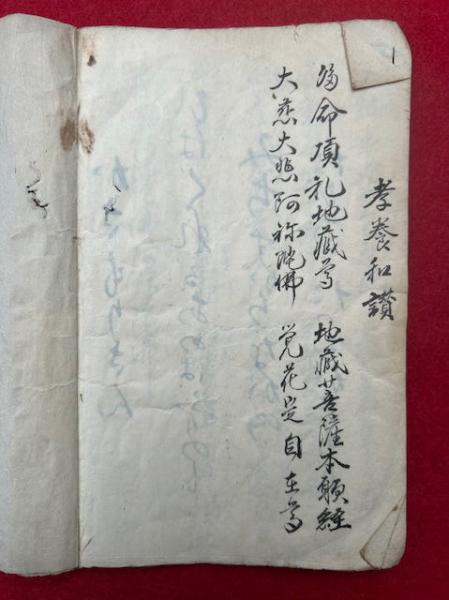 孝養和讃
帰命頂礼地蔵尊 地蔵菩薩本願経
大慈大悲阿弥陀佛 覚花定自在尊